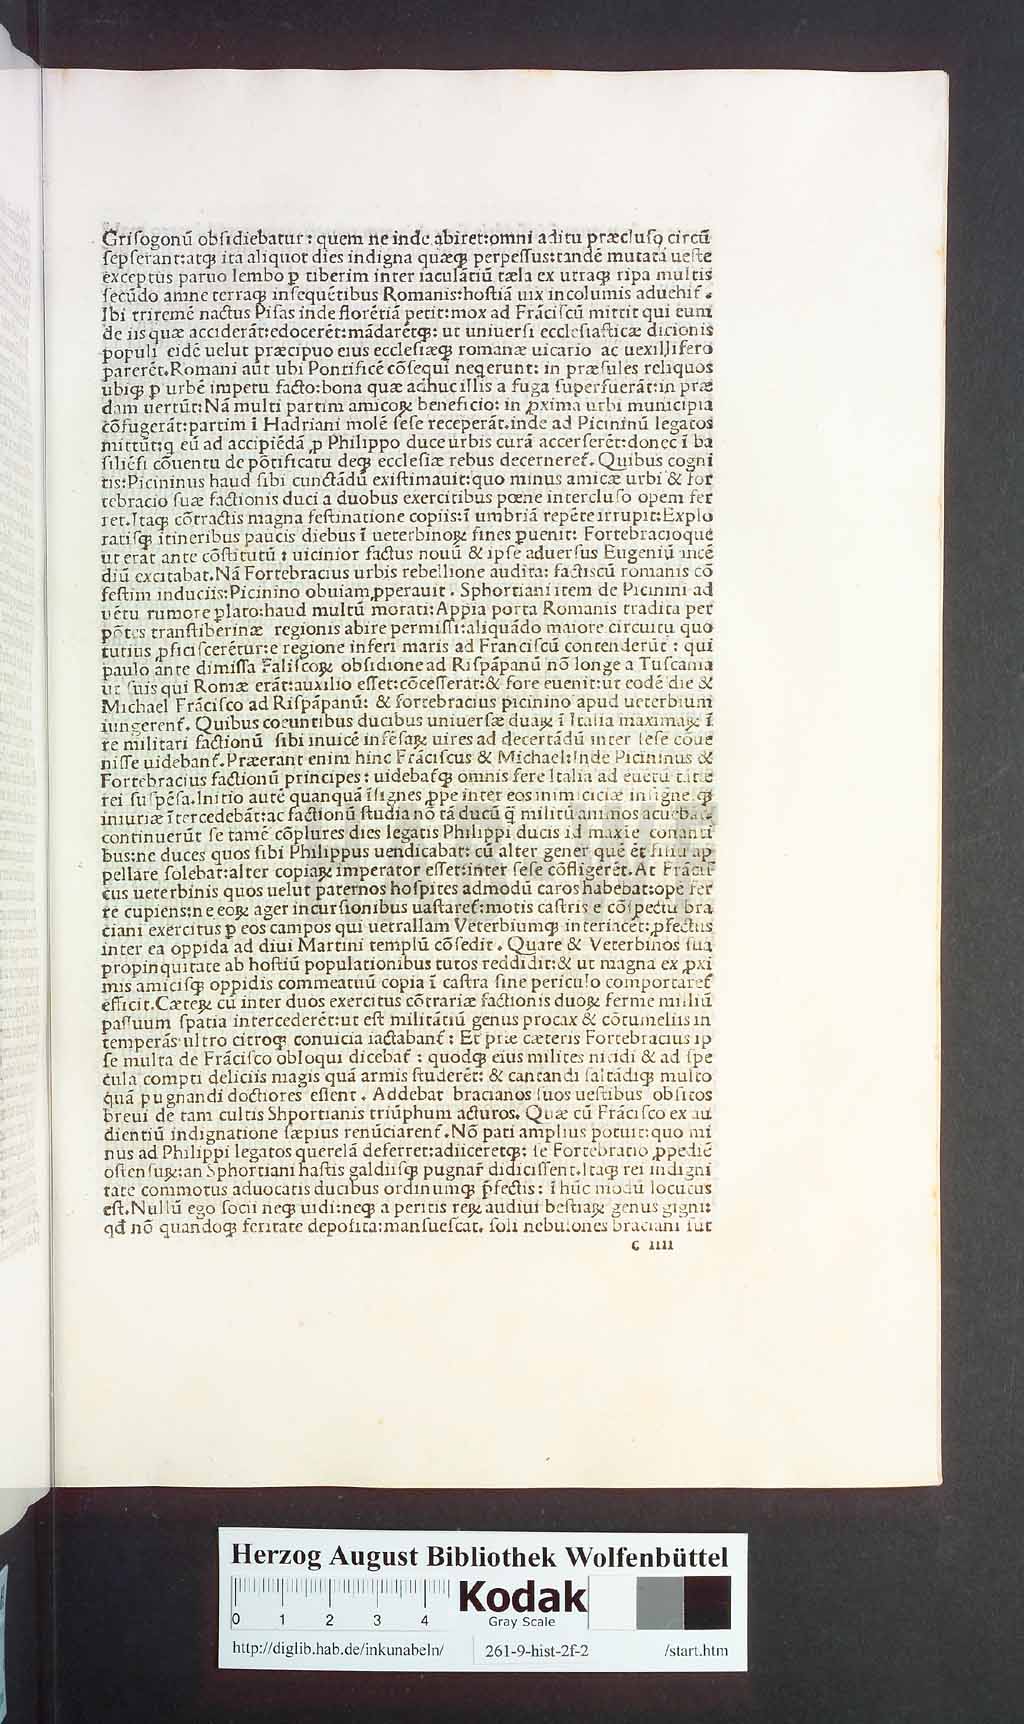 Griſogonū obſidiebatur: quem ne inde abiret:omni aditu præcluſo circū
ſepſerant:atqꝫ ita aliquot dies indigna quæqꝫ perpeſſus:tandē mutata ueſte
exceptus paruo lembo ꝑ tiberim inter iaculātiū tæla ex utraqꝫ ripa multis
ſecūdo amne terraqꝫ inſequētibus Romanis:hoſtiā uix incolumis aduehit̄.
Ibi triremē nactus Piſas inde florētiā petit:mox ad Frāciſcū mittit qui eum
de iis quæ acciderāt:edocerēt:mādarētqꝫ: ut uniuerſi eccleſiaſticæ dicionis
populi eidē uelut præcipuo eius eccleſiæqꝫ romanæ uicario ac uexillifero
parerēt.Romani aūt ubi Pontificē cōſequi neqerunt: in præſules reliquos
ubiqꝫ ꝑ urbē impetu facto:bona quæ adhuc illis a fuga ſuperfuerāt:in præ
dam uertūt:Nā multi partim amicoꝝ beneficio: in ꝓxima urbi municipia
cōfugerāt:partim ī Hadriani molē ſeſe receperāt.inde ad Picininū legatos
mittūt:q eū ad accipiēdā ꝓ Philippo duce urbis curā accerſerēt:donec ī ba
ſiliēſi cōuentu de pōtificatu deqꝫ eccleſiæ rebus decerneret̄. Quibus cogni
tis:Picininus haud ſibi cunctādū exiſtimauit:quo minus amicæ urbi & for
tebracio ſuæ factionis duci a duobus exercitibus pœne intercluſo opem fer
ret.Itaqꝫ cōtractis magna feſtinatione copiis:ī umbriā repēte irrupit:Explo
ratiſqꝫ itineribus paucis diebus ī ueterbinoꝝ fines ꝑuenit: Fortebracioque
ut erat ante cōſtitutū : uicinior factus nouū & ipſe aduerſus Eugeniū incē
diū excitabat.Nā Fortebracius urbis rebellione audita: factiſcū romanis cō
feſtim induciis:Picinino obuiam ꝓperauit. Sphortiani item de Picinini ad
uētu rumore ꝑlato:haud multū morati:Appia porta Romanis tradita per
pōtes tranſtiberinæ regionis abire permiſſi:aliquādo maiore circuitu quo
tutius ꝓficiſcerētur:e regione inferi maris ad Franciſcū contenderūt : qui
paulo ante dimiſſa Faliſcoꝝ obſidione ad Riſpāpanū nō longe a Tuſcania
ut ſuis qui Romæ erāt:auxilio eſſet:cōceſſerat:& fore euenit:ut eodē die &
Michael Frāciſco ad Riſpāpanū: & fortebracius picinino apud ueterbium
iungerent̄. Quibus coeuntibus ducibus uniuerſæ duaꝝ ī Italia maximaꝝ ī
re militari factionū ſibi inuicē infēſaꝝ uires ad decertādū inter ſeſe cōue
niſſe uidebant̄.Præerant enim hinc Frāciſcus & Michael:Inde Picininus &
Fortebracius factionū principes: uidebat̄qꝫ omnis fere Italia ad euētū
rei ſuſpēſa.Initio autē quanquā īſignes ꝓpe inter eos inimiciciæ inſigneſqꝫ
iniuriæ ītercedebāt:ac factionū ſtudia nō tā ducū q̄ militū animos acuebat:
continuerūt ſe tamē cōplures dies legatis Philippi ducis id maxīe conanti
bus:ne duces quos ſibi Philippus uendicabat: cū alter gener quē ēt filiū ap
pellare ſolebat:alter copiaꝝ imperator eſſet:inter ſeſe cōfligerēt.At Frāciſ
cus ueterbinis quos uelut paternos hoſpites admodū caros habebat:opē fer
re cupiens:ne eoꝝ ager incurſionibus uaſtaret̄:motis caſtris e cōſpectu bra
ciani exercitus ꝑ eos campos qui uetrallam Veterbiumqꝫ interiacēt:ꝓfectus
inter ea oppida ad diui Martini templū cōſedit. Quare & Veterbinos ſua
propinquitate ab hoſtiū populationibus tutos reddidit:& ut magna ex ꝓxi
mis amiciſqꝫ oppidis commeatuū copia ī caſtra ſine periculo comportaret̄
efficit.Cæteꝝ cū inter duos exercitus cōtrariæ factionis duoꝝ ferme miliū
paſſuum ſpatia intercederēt:ut eſt militātiū genus procax & cōtumeliis in
temperās ultro citroqꝫ conuicia iactabant̄: Et præ cæteris Fortebracius ip
ſe multa de Frāciſco obloqui dicebat̄ : quodqꝫ eius milites nitidi & ad ſpe
cula compti deliciis magis quā armis ſtuderēt: & cantandi ſaltādiqꝫ multo
quā pugnandi doctiores eſſent. Addebat bracianos ſuos ueſtibus obſitos
breui de tam cultis Shportianis triūphum acturos. Quæ cū Frāciſco ex au
dientiū indignatione ſæpius renūciarent̄.Nō pati amplius potuit:quo mi
nus ad Philippi legatos querelā deferret:adiiceretqꝫ: ſe Fortebratio ꝓpediē
oſtenſuꝝ:an Sphortiani haſtis gladiiſqꝫ pugnar̄ didiciſſent.Itaqꝫ rei indigni
tate commotus aduocatis ducibus ordinumqꝫ p̄fectis: ī hūc modū locutus
eſt.Nullū ego ſocii neqꝫ uidi:neqꝫ a peritis reꝝ audiui beſtiaꝝ genus gigni:
qd̄ nō quandoqꝫ feritate depoſita:manſueſcat. ſoli nebulones braciani ſut
c iiii
Herzog August Bibliothek Wolfenbüttel
0 1 2 3 4
Kodak
Gray Scale
http://diglib.hab.de/inkunabeln/ 261-9-hist-2f-2 /start.htm